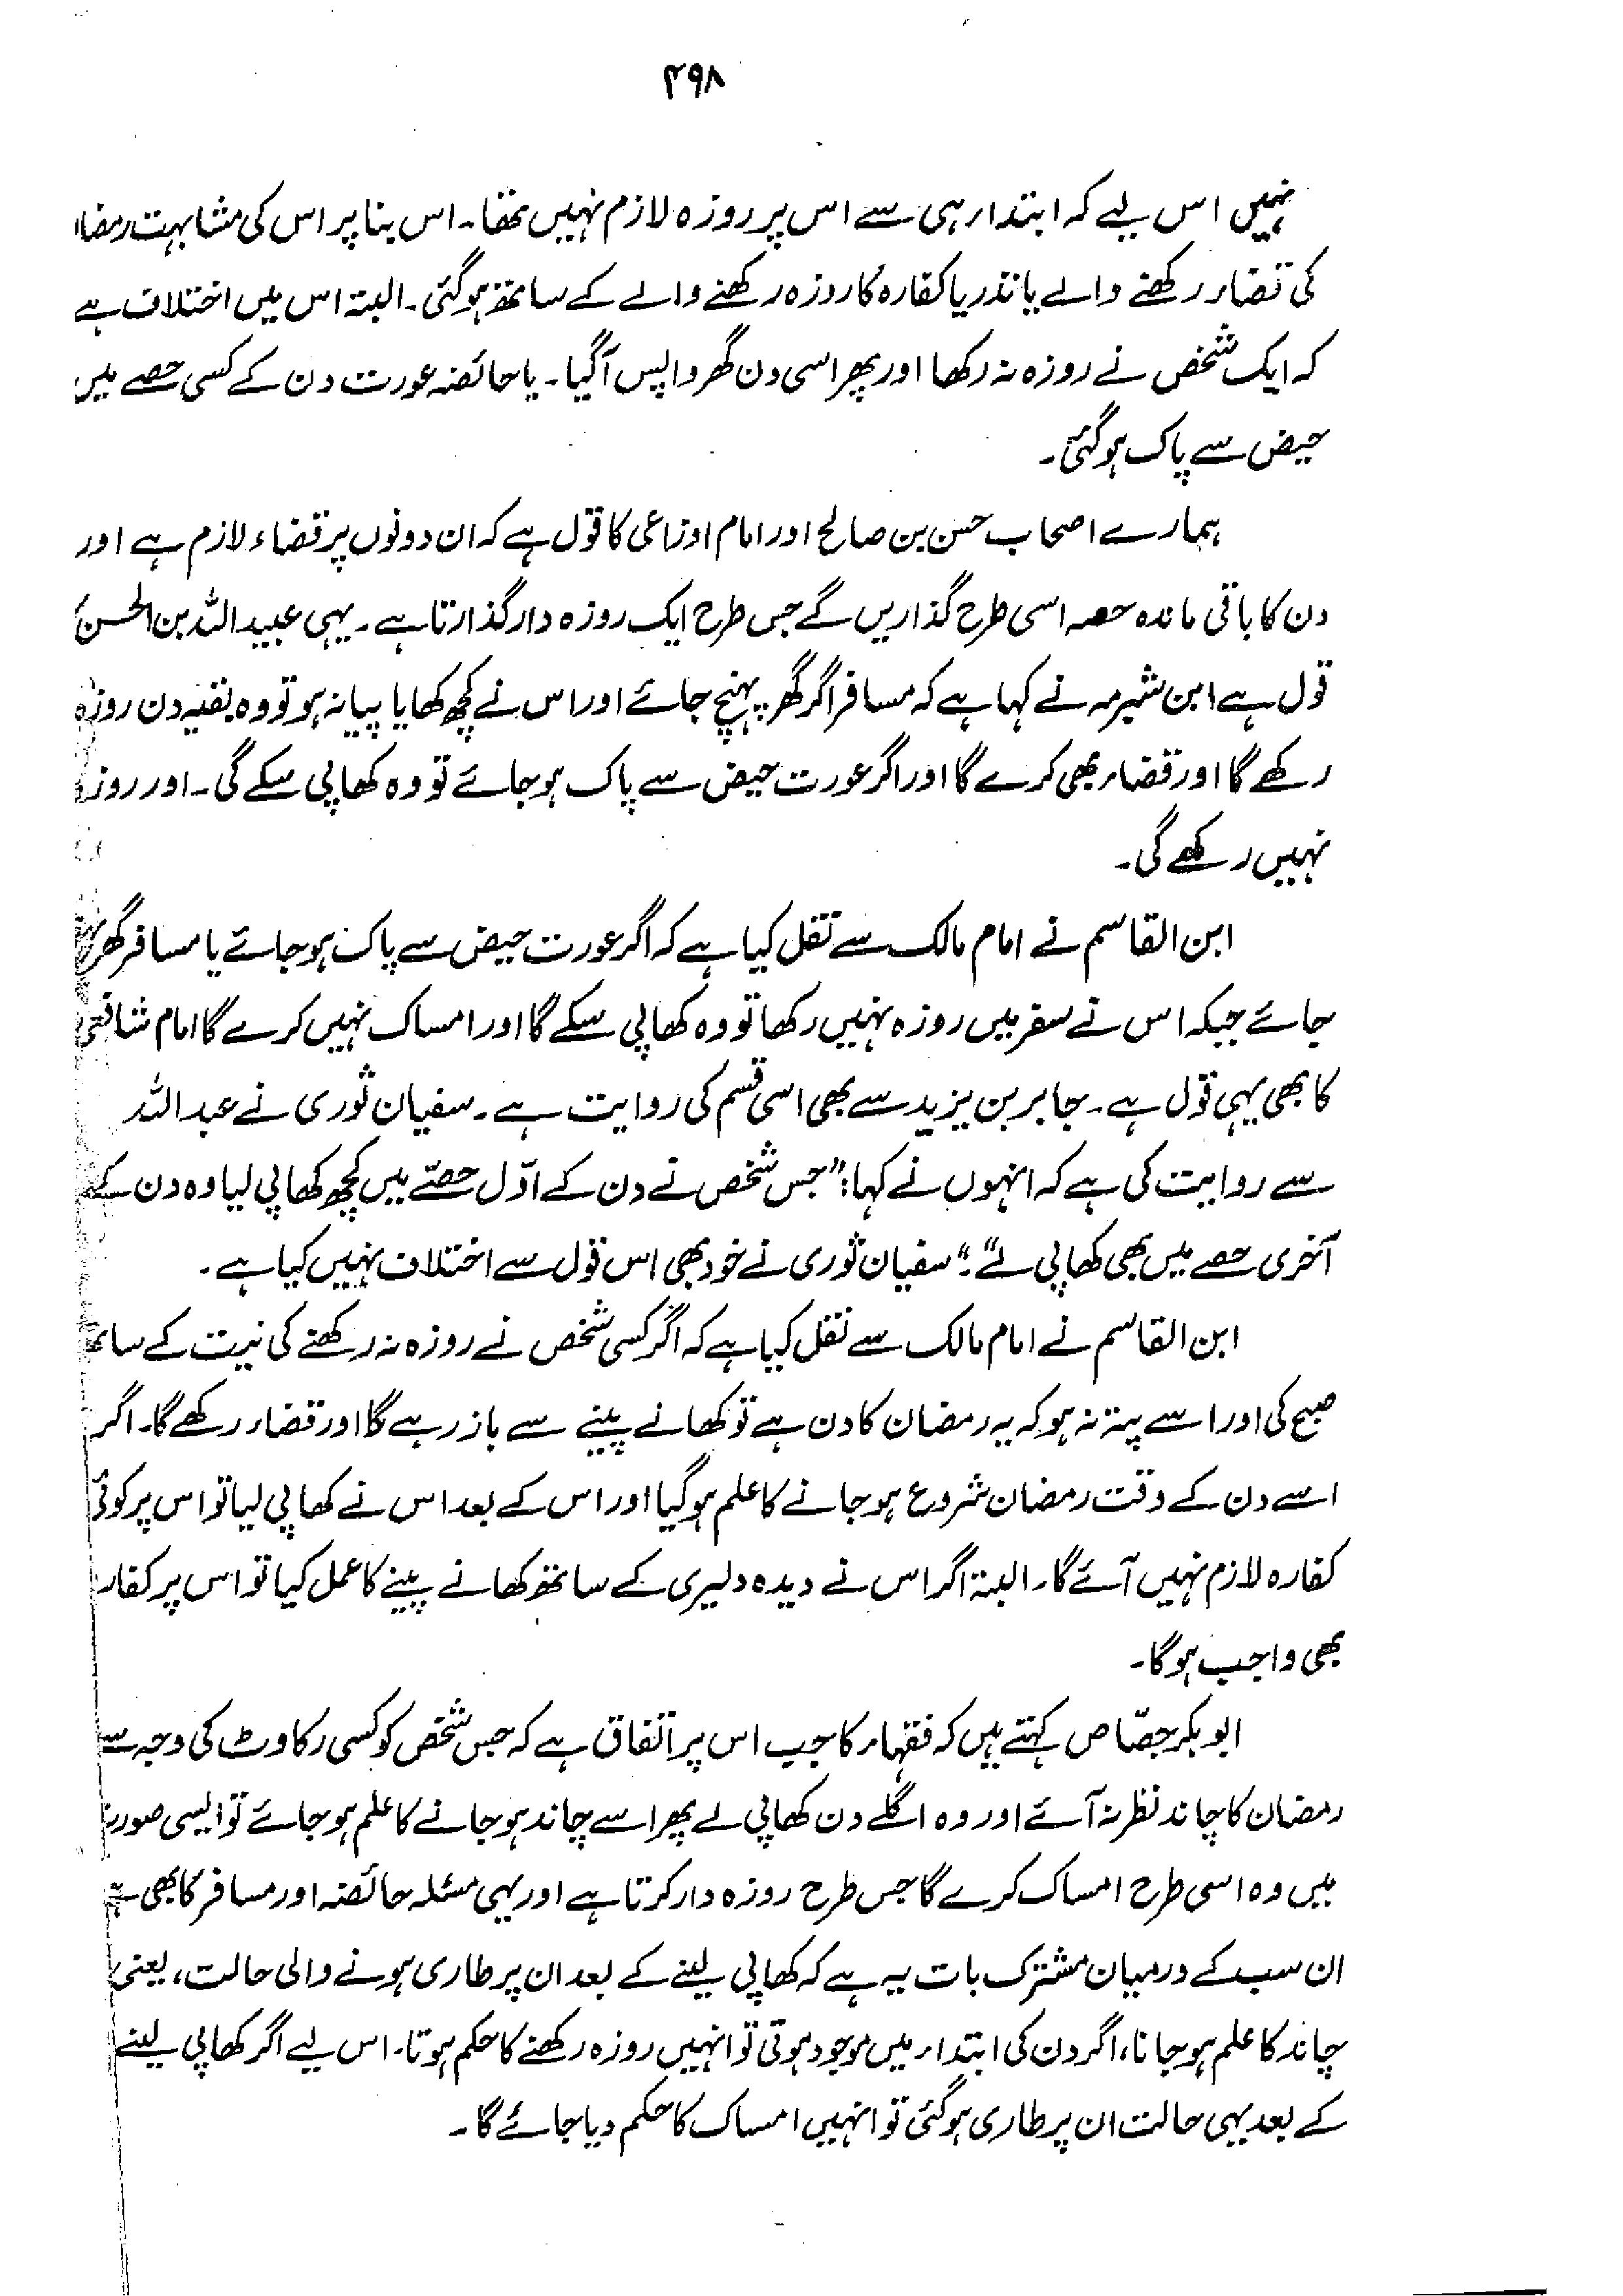 ۴۹۸
نہیں اس لیے کہ ابتداء ہی سے اس پر روزہ لازم نہیں تھا۔ اس بنا پر اس کی مشابہت رمضا
کی قضاء رکھنے والے یا نذر یا کفارہ کا روزہ رکھنے والے کے ساتھ ہوگئی۔ البتہ اس میں اختلاف ہے
کہ ایک شخص نے روزہ نہ رکھا اور پھر اسی دن گھر واپس آگیا۔ یا حائضہ عورت دن کے کسی حصے میں
حیض سے پاک ہوگئی۔
ہمارے اصحاب حسن بن صالح اور امام اوزاعی کا قول ہے کہ ان دونوں پر قضاء لازم ہے اور
دن کا باقی ماندہ حصہ اسی طرح گذاریں گے جس طرح ایک روزہ دار گذارتا ہے۔ یہی عبید اللہ بن الحسن
قول ہے ابن شبرمہ نے کہا ہے کہ مسافر اگر گھر پہنچ جائے اور اس نے کچھ کھایا پیا نہ ہو تو وہ بقیہ دن روزہ
رکھے گا اور قضاء بھی کرے گا اور اگر عورت حیض سے پاک ہوجائے تو وہ کھا پی سکے گی۔ اور روزہ
نہیں رکھے گی۔
ابن القاسم نے امام مالک سے نقل کیا ہے کہ اگر عورت حیض سے پاک ہوجائے یا مسافر گھر
جائے جبکہ اس نے سفر میں روزہ نہیں رکھا تو وہ کھا پی سکے گا اور امساک نہیں کرے گا امام شافعی
کا بھی یہی قول ہے۔ جابر بن یزید سے بھی اسی قسم کی روایت ہے۔ سفیان ثوری نے عبداللہ
سے روایت کی ہے کہ انہوں نے کہا: "جس شخص نے دن کے اوّل حصّے میں کچھ کھا پی لیا وہ دن کے
آخری حصے میں بھی کھا پی لے"؛ سفیان ثوری نے خود بھی اس قول سے اختلاف نہیں کیا ہے۔
ابن القاسم نے امام مالک سے نقل کیا ہے کہ اگر کسی شخص نے روزہ نہ رکھنے کی نیت کے سا
صبح کی اور اسے پتہ نہ ہو کہ یہ رمضان کا دن ہے تو کھانے پینے سے باز رہے گا اور قضاء رکھے گا۔ اگر
اسے دن کے وقت رمضان شروع ہوجانے کا علم ہوگیا اور اس کے بعد اس نے کھا پی لیا تو اس پر کوئی
کفارہ لازم نہیں آئے گا۔ البتہ اگر اس نے دیدہ دلیری کے ساتھ کھانے پینے کا عمل کیا تو اس پر کفار
بھی واجب ہوگا۔
ابو بکر جصّاص کہتے ہیں کہ فقہاء کا جب اس پر اتفاق ہے کہ جس شخص کو کسی رکاوٹ کی وجہ سے
رمضان کا چاند نظر نہ آئے اور وہ اگلے دن کھا پی لے پھر اسے چاند ہوجانے کا علم ہوجائے تو ایسی صورت
میں وہ اسی طرح امساک کرے گا جس طرح روزہ دار کرتا ہے اور یہی مسئلہ حائضہ اور مسافر کا بھی ہے
ان سب کے درمیان مشترک بات یہ ہے کہ کھا پی لینے کے بعد ان پر طاری ہونے والی حالت، یعنی
چاند کا علم ہوجانا، اگر دن کی ابتداء میں موجود ہوتی تو انہیں روزہ رکھنے کا حکم ہوتا۔ اس لیے اگر کھا پی لینے
کے بعد یہی حالت ان پر طاری ہوگئی تو انہیں امساک کا حکم دیا جائے گا۔